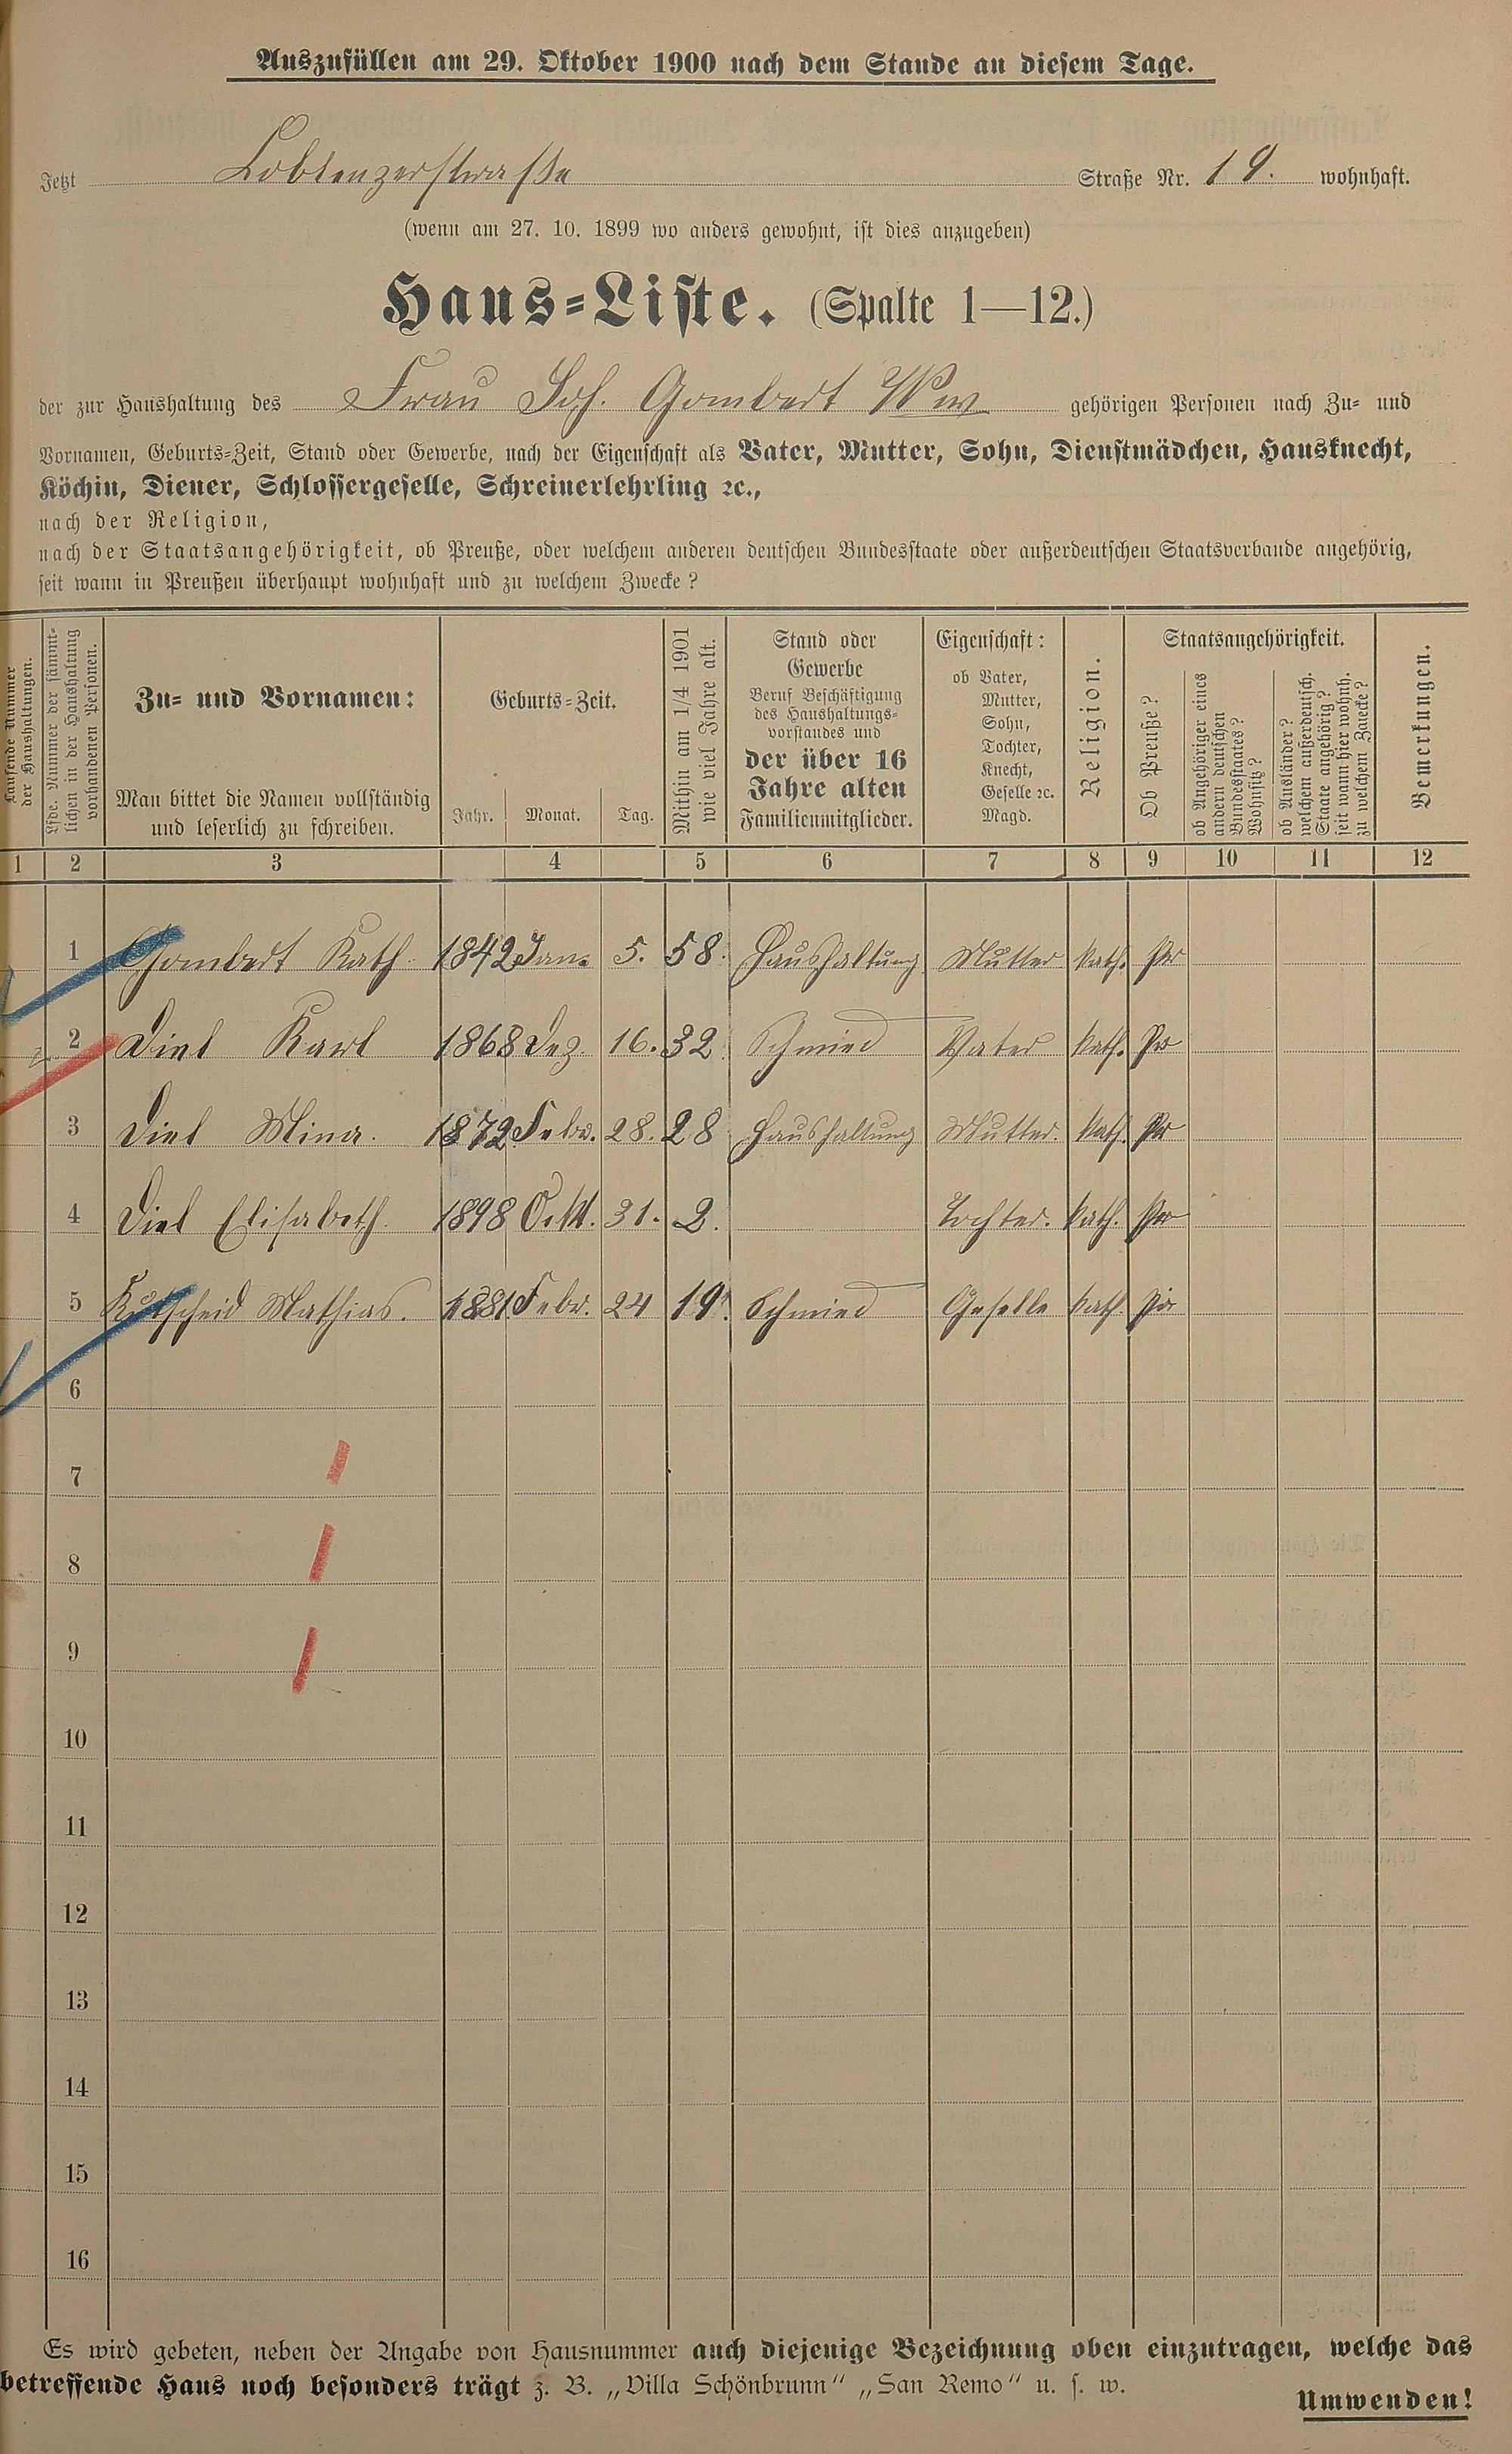 Auszufüllen am 29. Oktober 1900 nach dem Stande an diesem Tage.
Jetzt Coblenzerstrasse Straße Nr. 19. wohnhaft.
(wenn am 27. 10. 1899 wo anders gewohnt, ist dies anzugeben)
Haus-Liste. (Spalte 1—12.)
der zur Haushaltung des Frau Joh. Gombert Ww gehörigen Personen nach Zu- und
Vornamen, Geburts-Zeit, Stand oder Gewerbe, nach der Eigenschaft als Vater, Mutter, Sohn, Dienstmädchen, Hausknecht,
Köchin, Diener, Schlossergeselle, Schreinerlehrling ꝛc.,
nach der Religion,
nach der Staatsangehörigkeit, ob Preuße, oder welchem anderen deutschen Bundesstaate oder außerdeutschen Staatsverbande angehörig,
seit wann in Preußen überhaupt wohnhaft und zu welchem Zwecke?
Laufende Nummer
der Haushaltungen.
Lfde. Nummer der sämmt-
lichen in der Haushaltung
vorhandenen Personen.
Zu- und Vornamen:
Man bittet die Namen vollständig
und leserlich zu schreiben.
Geburts-Zeit.
Jahr. Monat. Tag.
Mithin am 1/4 1901
wie viel Jahre alt.
Stand oder
Gewerbe
Beruf Beschäftigung
des Haushaltungs-
vorstandes und
der über 16
Jahre alten
Familienmitglieder.
Eigenschaft:
ob Vater,
Mutter,
Sohn,
Tochter,
Knecht,
Geselle ꝛc.
Magd.
Religion.
Staatsangehörigkeit.
Ob Preuße?
ob Angehöriger eines
andern deutschen
Bundesstaates?
Wohnsitz?
ob Ausländer?
welchem außerdeutsch.
Staate angehörig?
seit wann hier wohnh.
zu welchem Zwecke?
Bemerkungen.
1 2 3 4 5 6 7 8 9 10 11 12
1 Gombert Kath. 1842 Jan. 5. 58. Haushaltung Mutter kath. Pr
2 Diel Karl 1868 Dez. 16. 32 Schmied Vater kath. Pr
3 Diel Mina. 1872 Febr. 28. 28 Haushaltung Mutter. kath. Pr
4 Diel Elisabeth. 1898 Okt. 31. 2. Tochter. kath. Pr
5 Kutscheid Mathias. 1881. Febr. 24 19. Schmied Geselle kath. Pr
6
7
8
9
10
11
12
13
14
15
16
Es wird gebeten, neben der Angabe von Hausnummer auch diejenige Bezeichnung oben einzutragen, welche das
betreffende Haus noch besonders trägt z. B. „Villa Schönbrunn" „San Remo" u. s. w.
Umwenden!